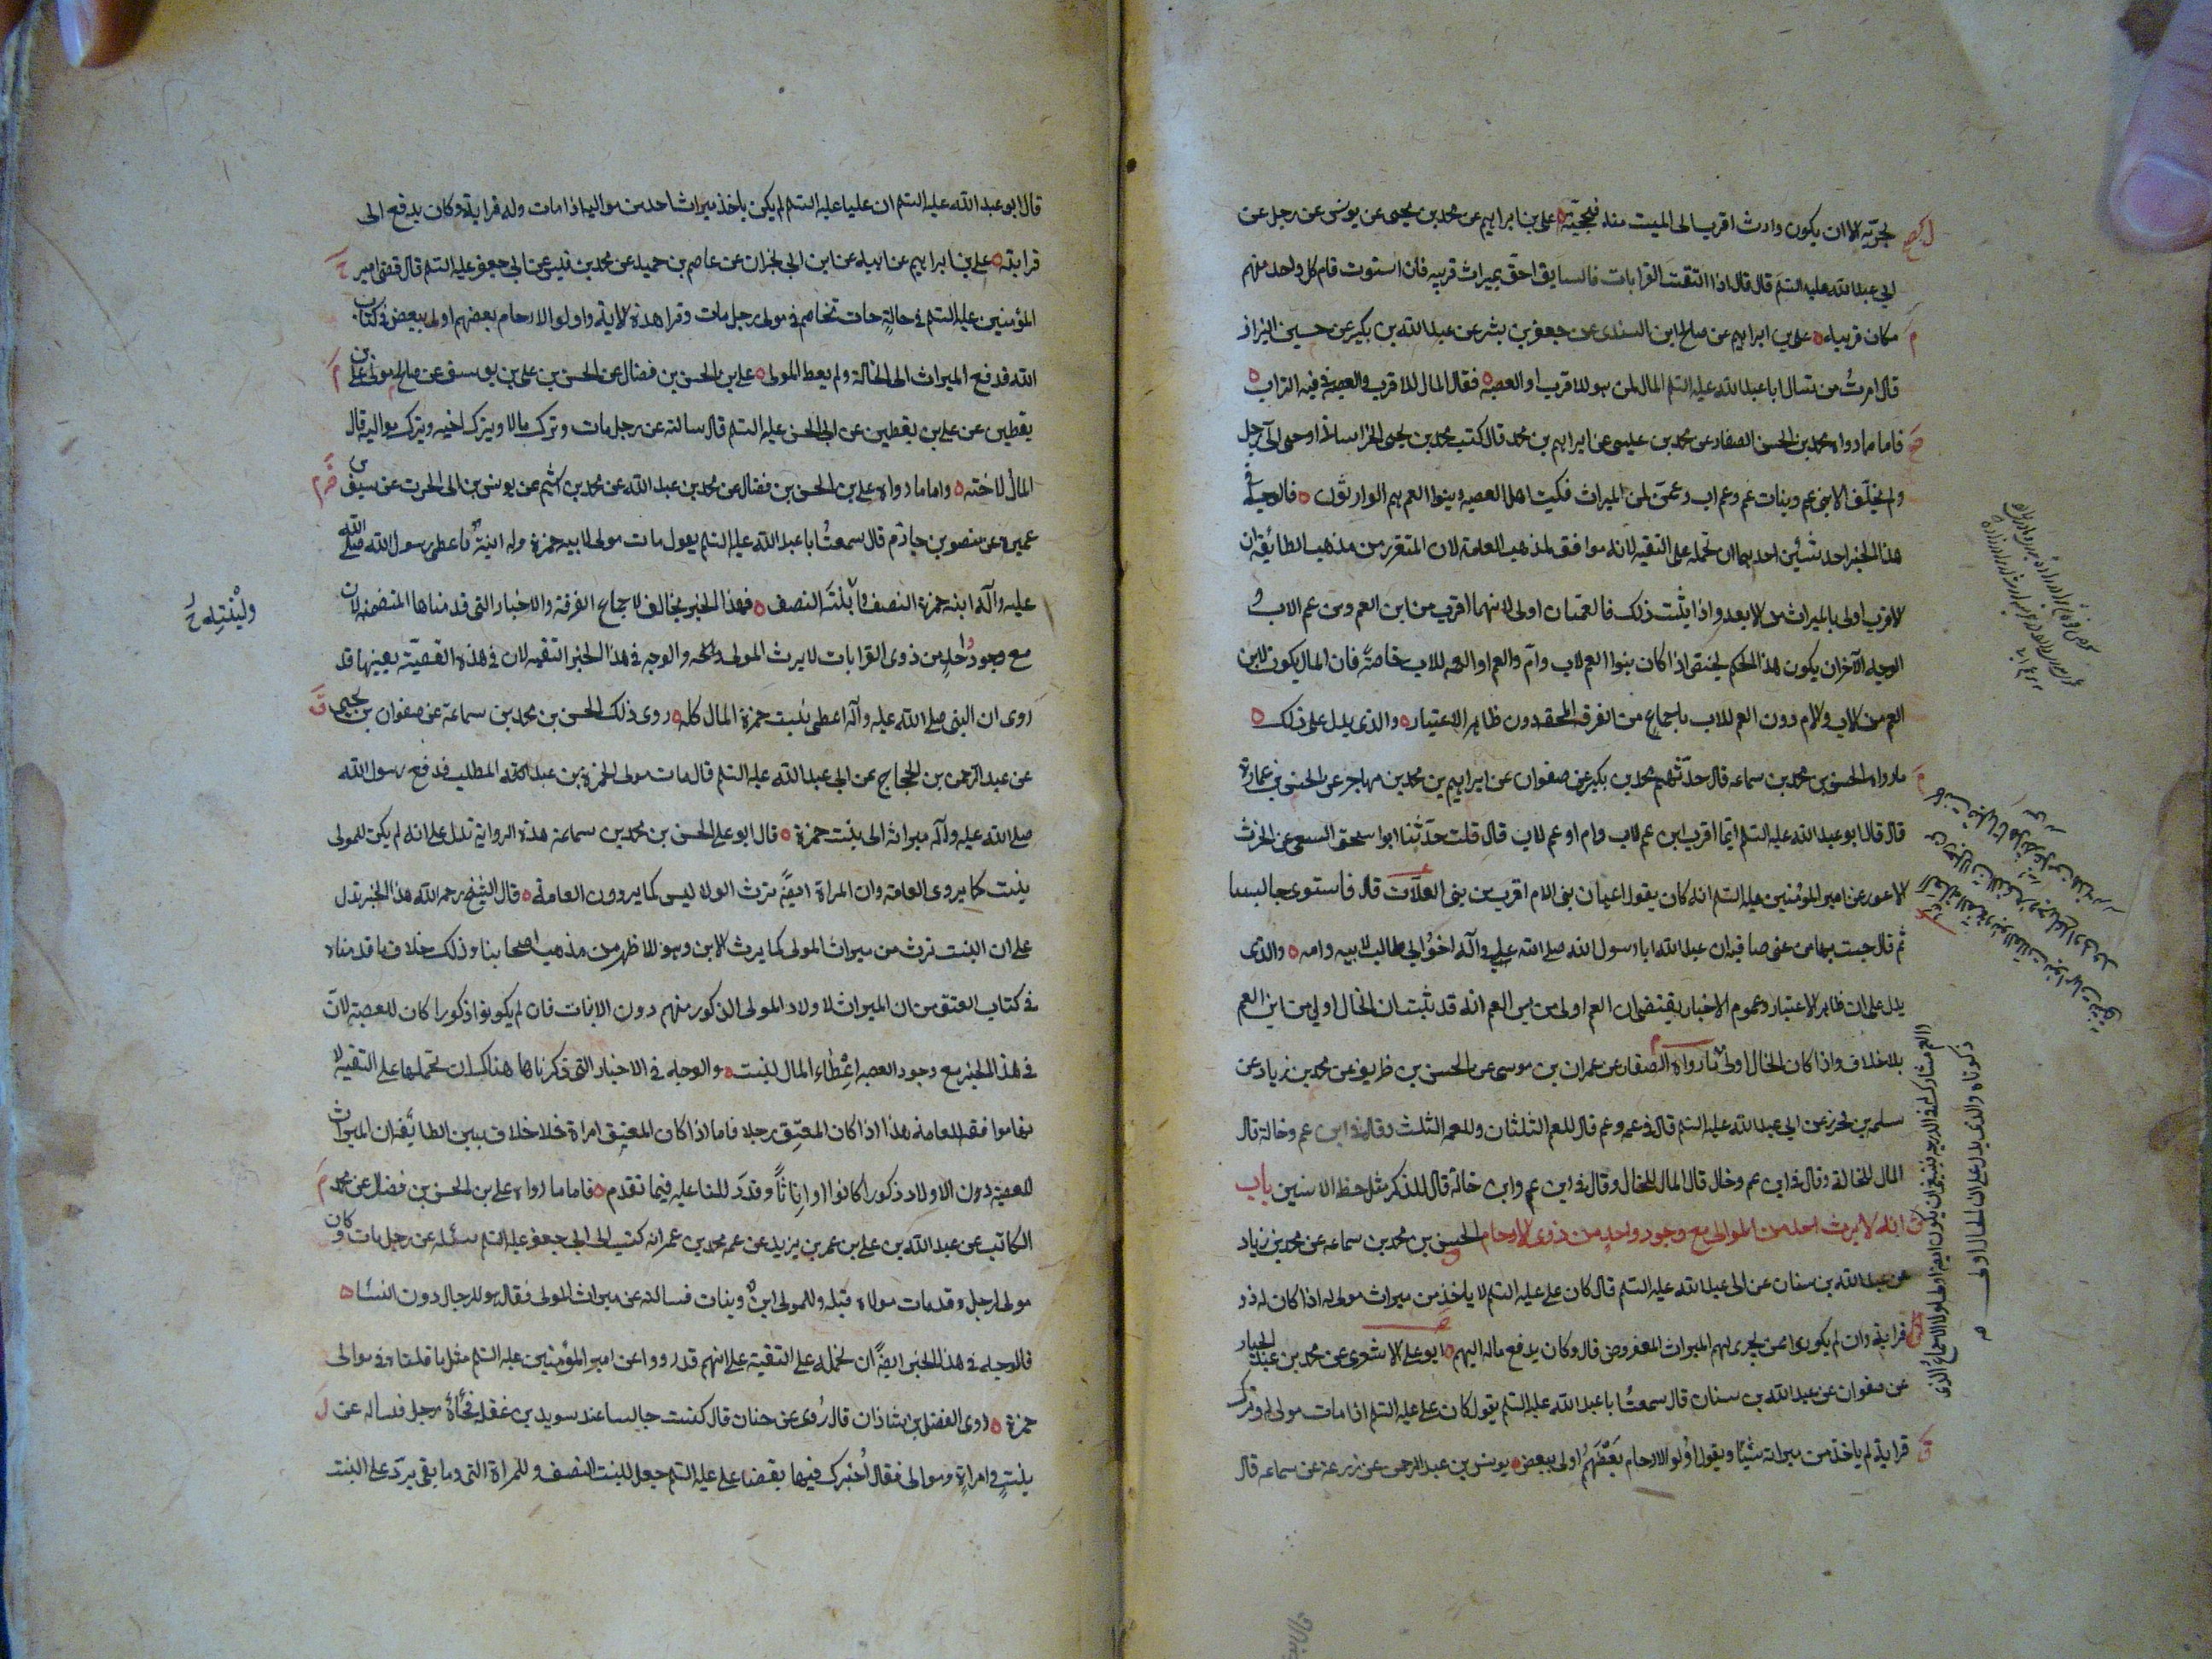 يجرّ به الا ان يكون وارث اقرب الى الميت منه فيحجبه على بن ابراهيم عن محمد بن عيسى عن يونس عن رجل عن
ابي عبد الله عليه السّلم قال قال اذا التقت القرابات فالسابق احق بميراث قريبه فان استوت قام كل واحد منهم
مكان قريبه على بن ابراهيم عن صالح ابن السندى عن جعفر بن بشير عن عبد الله بن بكير عن حسين البزاز
قال امرت من يسال ابا عبد الله عليه السلم المال لمن هو للاقرب او العصبه فقال المال للاقرب والعصبة في فيه التراب
فاما ما رواه محمد بن الحسن الصفار عن محمد بن عيسى عن ابراهيم بن محمد قال كتب محمد بن يحيى الخراسانى اوصى الىّ رجل
ولم يخلّف الا بنى عم وبنات عم وعم اب وعمتين لمن الميراث فكتب اهل العصبه وبنوا العم هم الوارثون فالوجه في
هذا الخبر احد شيئين احدهما ان نحمله على التقيه لانه موافق لمذهب العامه لان المتقرر من مذهب الطائفة ان
الاقرب اولى بالميراث من الابعد واذا ثبت ذلك فالعمتان اولى لانهما اقرب من ابن العم ومن عم الاب و
الوجه الآخر ان يكون هذا الحكم يختص اذا كان بنوا العم لاب وام والعم او العمه للاب خاصة فان المال يكون لابن
العم من الاب والام دون العم للاب باجماع من الفرقه المحقه دون ظاهر الاعتبار والذى يدل على ذلك
ما رواه الحسن بن محمد بن سماعه قال حدّثهم محمد بن بكير عن صفوان عن ابراهيم بن محمد بن مهاجر عن الحسن بن عمارة
قال قال ابو عبد الله عليه السلم ايّما اقرب ابن عم لاب وام او عم لاب قال قلت حدّثنا ابو اسحق السبيعى عن الحرث
الاعور عن امير المؤمنين عليه السلم انه كان يقول اعيان بنى الام اقرب من بنى العلّات قال فاستوى جالسا
ثم قال جئت بها من عين صافيه ان عبد الله ابا رسول الله صلى الله عليه وآله اخو ابي طالب لابيه وامه والذى
يدل على ان ظاهر الاعتبار وعموم الاخبار يقتضى ان العم اولى من ابن العم انه قد ثبت ان الخال اولى من ابن العم
بلا خلاف واذا كان الخال اولى ما رواه الصفار عن عمران بن موسى عن الحسن بن ظريف عن محمد بن زياد عن
سلمه بن محرز عن ابي عبد الله عليه السلم قال في عمه وعم قال للعم الثلثان وللعمه الثلث وقال في ابن عم وخالة قال
المال للخالة وقال في ابن عم وخال قال المال للخال وقال في ابن عم وابن خالة قال للذكر مثل حظ الانثيين باب
انه لا يرث احد من الموالى مع وجود واحد من ذوى الارحام الحسن بن محمد بن سماعه عن محمد بن زياد
عن عبد الله بن سنان عن ابى عبد الله عليه السلم قال كان على عليه السلم لا ياخذ من ميراث مولى له اذا كان له ذو
قرابة وان لم يكونوا ممن يجرى لهم الميراث المفروض قال وكان يدفع ماله اليهم ابو على الاشعرى عن محمد بن عبد الجبار
عن صفوان عن عبد الله بن سنان قال سمعت ابا عبد الله عليه السلم يقول كان على عليه السلم اذا مات مولى له وترك
قرابة لم ياخذ من ميراثه شيئًا ويقول اولو الارحام بعضهم اولى ببعض يونس بن عبد الرحمن عن زرعة عن سماعه قال
العم مشارك له في الدرجه فينبغى ان يكون ايضا اولى لولا الاجماع الذى
ذكرناه والذى يدل على ان الخال اولى
قال ابو عبد الله عليه السلم ان عليا عليه السلم لم يكن ياخذ ميراث احد من مواليه اذا مات وله قرابة وكان يدفع الى
قرابته على بن ابراهيم عن ابيه عن ابن ابي نجران عن عاصم بن حميد عن محمد بن قيس عن ابي جعفر عليه السلم قال قضى امير
المؤمنين عليه السلم في خالةٍ جات تخاصم في مولى رجل مات وقرا هذه الاية واولوا الارحام بعضهم اولى ببعض في كتاب
الله فدفع الميراث الى الخالة ولم يعط المولى على بن الحسن بن فضال عن الحسن بن على بن يوسف عن صالح مولى على بن
يقطين عن على بن يقطين عن ابى الحسن عليه السلم قال سالته عن رجل مات وترك مالا وترك اخته وترك مواليه قال
المال لاخته واما ما رواه على بن الحسن بن فضال عن محمد بن عبد الله عن محمد بن اشيم عن يونس بن ابى الحرث عن سيف بن
عميرة عن منصور بن حازم قال سمعت ابا عبد الله عليه السلم يقول مات مولى لابنه حمزة وله ابنة فاعطى رسول الله صلى الله
عليه وآله ابنه حمزة النصف وابنته النصف فهذا الخبر مخالف لاجماع الفرقة والاخبار التى قدمناها المتضمنه لان
مع وجود واحد من ذوى القرابات لا يرث المولى والوجه في هذا الخبر التقيه لان في هذه القصيّة بعينها قد
روى ان النبى صلى الله عليه وآله اعطى بنت حمزة المال كله روى ذلك الحسن بن محمد بن سماعة عن صفوان بن يحيى
عن عبد الرحمن بن الحجاج عن ابي عبد الله عليه السلم قال مات مولى لحمزة بن عبد المطلب فدفع رسول الله
صلى الله عليه وآله ميراثه الى بنت حمزة قال ابو على الحسن بن محمد بن سماعة هذه الرواية تدل على انه لم يكن للمولى
بنت كما يروى العامة وان المراة ايضًا ترث الولاء ليس كما يروون العامة قال الشيخ رحمه الله هذا الخبر يدل
على ان البنت ترث من ميراث المولى كما يرث الابن وهو الاظهر من مذهب اصحابنا وذلك خلاف ما قدمناه
في كتاب العتق من ان الميراث لاولاد المولى الذكور منهم دون الاناث فان لم يكونوا ذكورا كان للعصبة لانّ
في هذا الخبر مع وجود العصبه اعطاء المال للبنت والوجه في الاخبار التى ذكرناها هناك ان نحملها على التقيه لا
نها موافقه للعامة هذا اذا كان المعتِق رجلا فاما اذا كان المعتِق امراة فلا خلاف بين الطائفة ان الميراث
للعصبة دون الاولاد ذكورا كانوا او اناثًا وقد دللنا عليه فيما تقدم فاما ما رواه على بن الحسن بن فضال عن محمد
الكاتب عن عبد الله بن على بن عمر بن يزيد عن عمه محمد بن عمر انه كتب الى ابى جعفر عليه السلم يسئله عن رجل مات وكان
مولى لرجل وقد مات مولاه قبله وللمولى ابن وبنات فسالته عن ميراث المولى فقال هو للرجال دون النساء
فالوجه في هذا الخبر ايضًا ان نحمله على التقية على انهم قد رووا عن امير المؤمنين عليه السلم مثل ما قلناه في موالى
حمزة روى الفضل بن شاذان قال رُوى عن حنان قال كنت جالسا عند سويد بن غفلة فجاءه رجل فساله عن
بنتٍ وامراةٍ وموالى فقال اُخبرك فيها بقضاء على عليه السلم جعل للبنت النصف وللمراة الثمن وما بقى يردّ على البنت